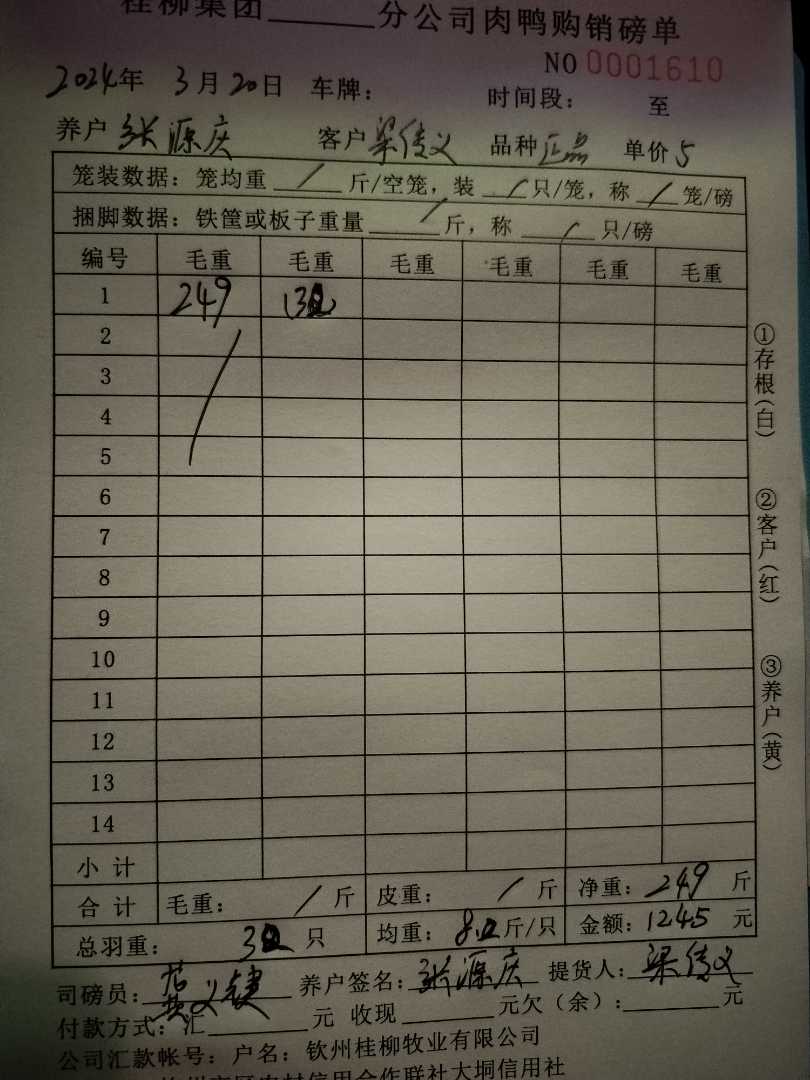 桂柳集团______分公司肉鸭购销磅单
NO 0001610
2024年 3月20日 车牌： 时间段： 至
养户 张源庆 客户 梁传义 品种 正品 单价 5
笼装数据：笼均重 / 斤/空笼，装 / 只/笼，称 / 笼/磅
捆脚数据：铁筐或板子重量 / 斤，称 / 只/磅
编号 毛重 毛重 毛重 毛重 毛重 毛重
1 249
2
3
4
5
6
7
8
9
10
11
12
13
14
小计
合计 毛重： / 斤 皮重： / 斤 净重：249 斤
总羽重： 只 均重： 斤/只 金额：1245 元
司磅员： 养户签名：张源庆 提货人：梁传义
付款方式：汇______元 收现______元欠（余）：______元
公司汇款帐号：户名：钦州桂柳牧业有限公司
农村信用合作联社大垌信用社
①存根（白）
②客户（红）
③养户（黄）